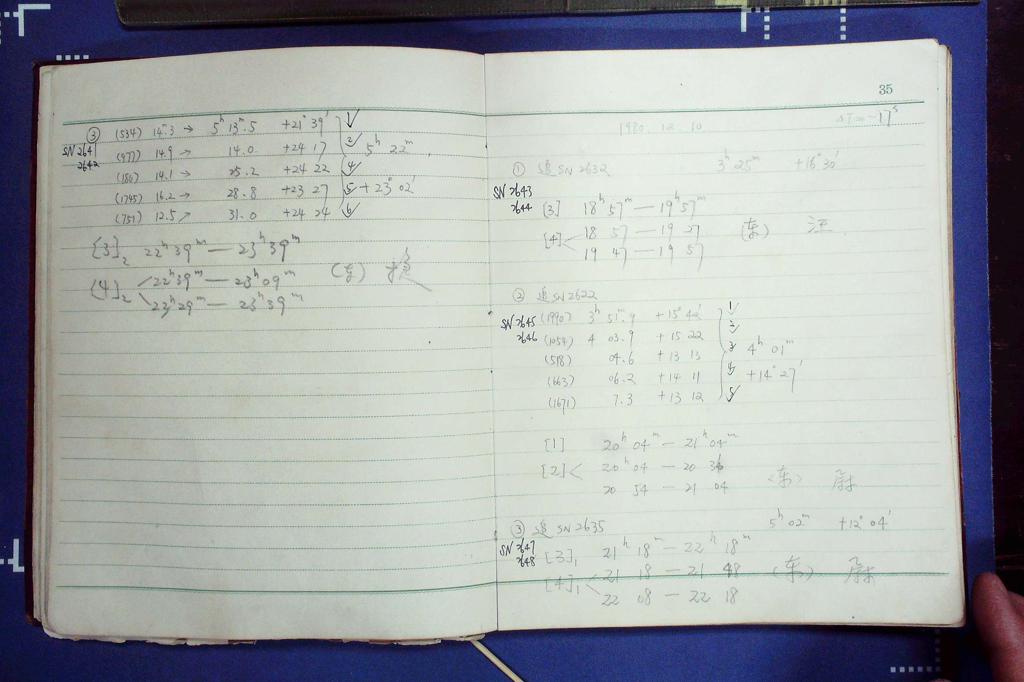 ③ (534) 14ᵐ.3 → 5ʰ 13ᵐ.5 +21° 39′ 1✓
SN 2641 (977) 14.9 → 14.0 +24 17 2✓ 5ʰ 22ᵐ
2642 (180) 14.1 → 25.2 +24 22 4✓
(1745) 16.2 → 28.8 +23 27 5✓ +23° 02′
(751) 12.5 ↗ 31.0 +24 24 6✓
[3]₂ 22ʰ 39ᵐ — 23ʰ 39ᵐ
[4]₂ 22ʰ39ᵐ — 23ʰ 09ᵐ
22ʰ 29ᵐ — 23ʰ39ᵐ
35
1980. 12. 10 ΔT = -17ˢ
① 追 SN 2632 3ʰ 25ᵐ +16° 30′
SN 2643
2644 [3] 18ʰ 57ᵐ — 19ʰ 57ᵐ
[4] 18 57 — 19 27 (东) 汪
19 47 — 19 57
② 追 SN 2622
SN 2645 (1990) 3ʰ 51ᵐ.9 +15° 42′ 1✓
2646 (1054) 4 03.9 +15 22 2✓
(518) 04.6 +13 13 3✓ 4ʰ 01ᵐ
(663) 06.2 +14 11 4✓ +14° 27′
(1671) 7.3 +13 12 5✓
[1] 20ʰ 04ᵐ — 21ʰ 04ᵐ
[2] 20ʰ 04 — 20 34
20 54 — 21 04 (东)
③ 追 SN 2635 5ʰ 02ᵐ +12° 04′
SN 2647 [3]₁ 21ʰ 18ᵐ — 22ʰ 18ᵐ
2648 [4]₁ 21 18 — 21 48 (东)
22 08 — 22 18